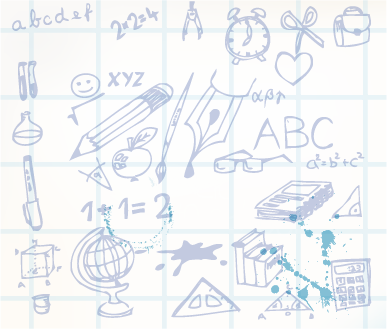 abcdef
2×2=4
XYZ
αβγ
ABC
a²=b²+c²
1+1=2
A
B